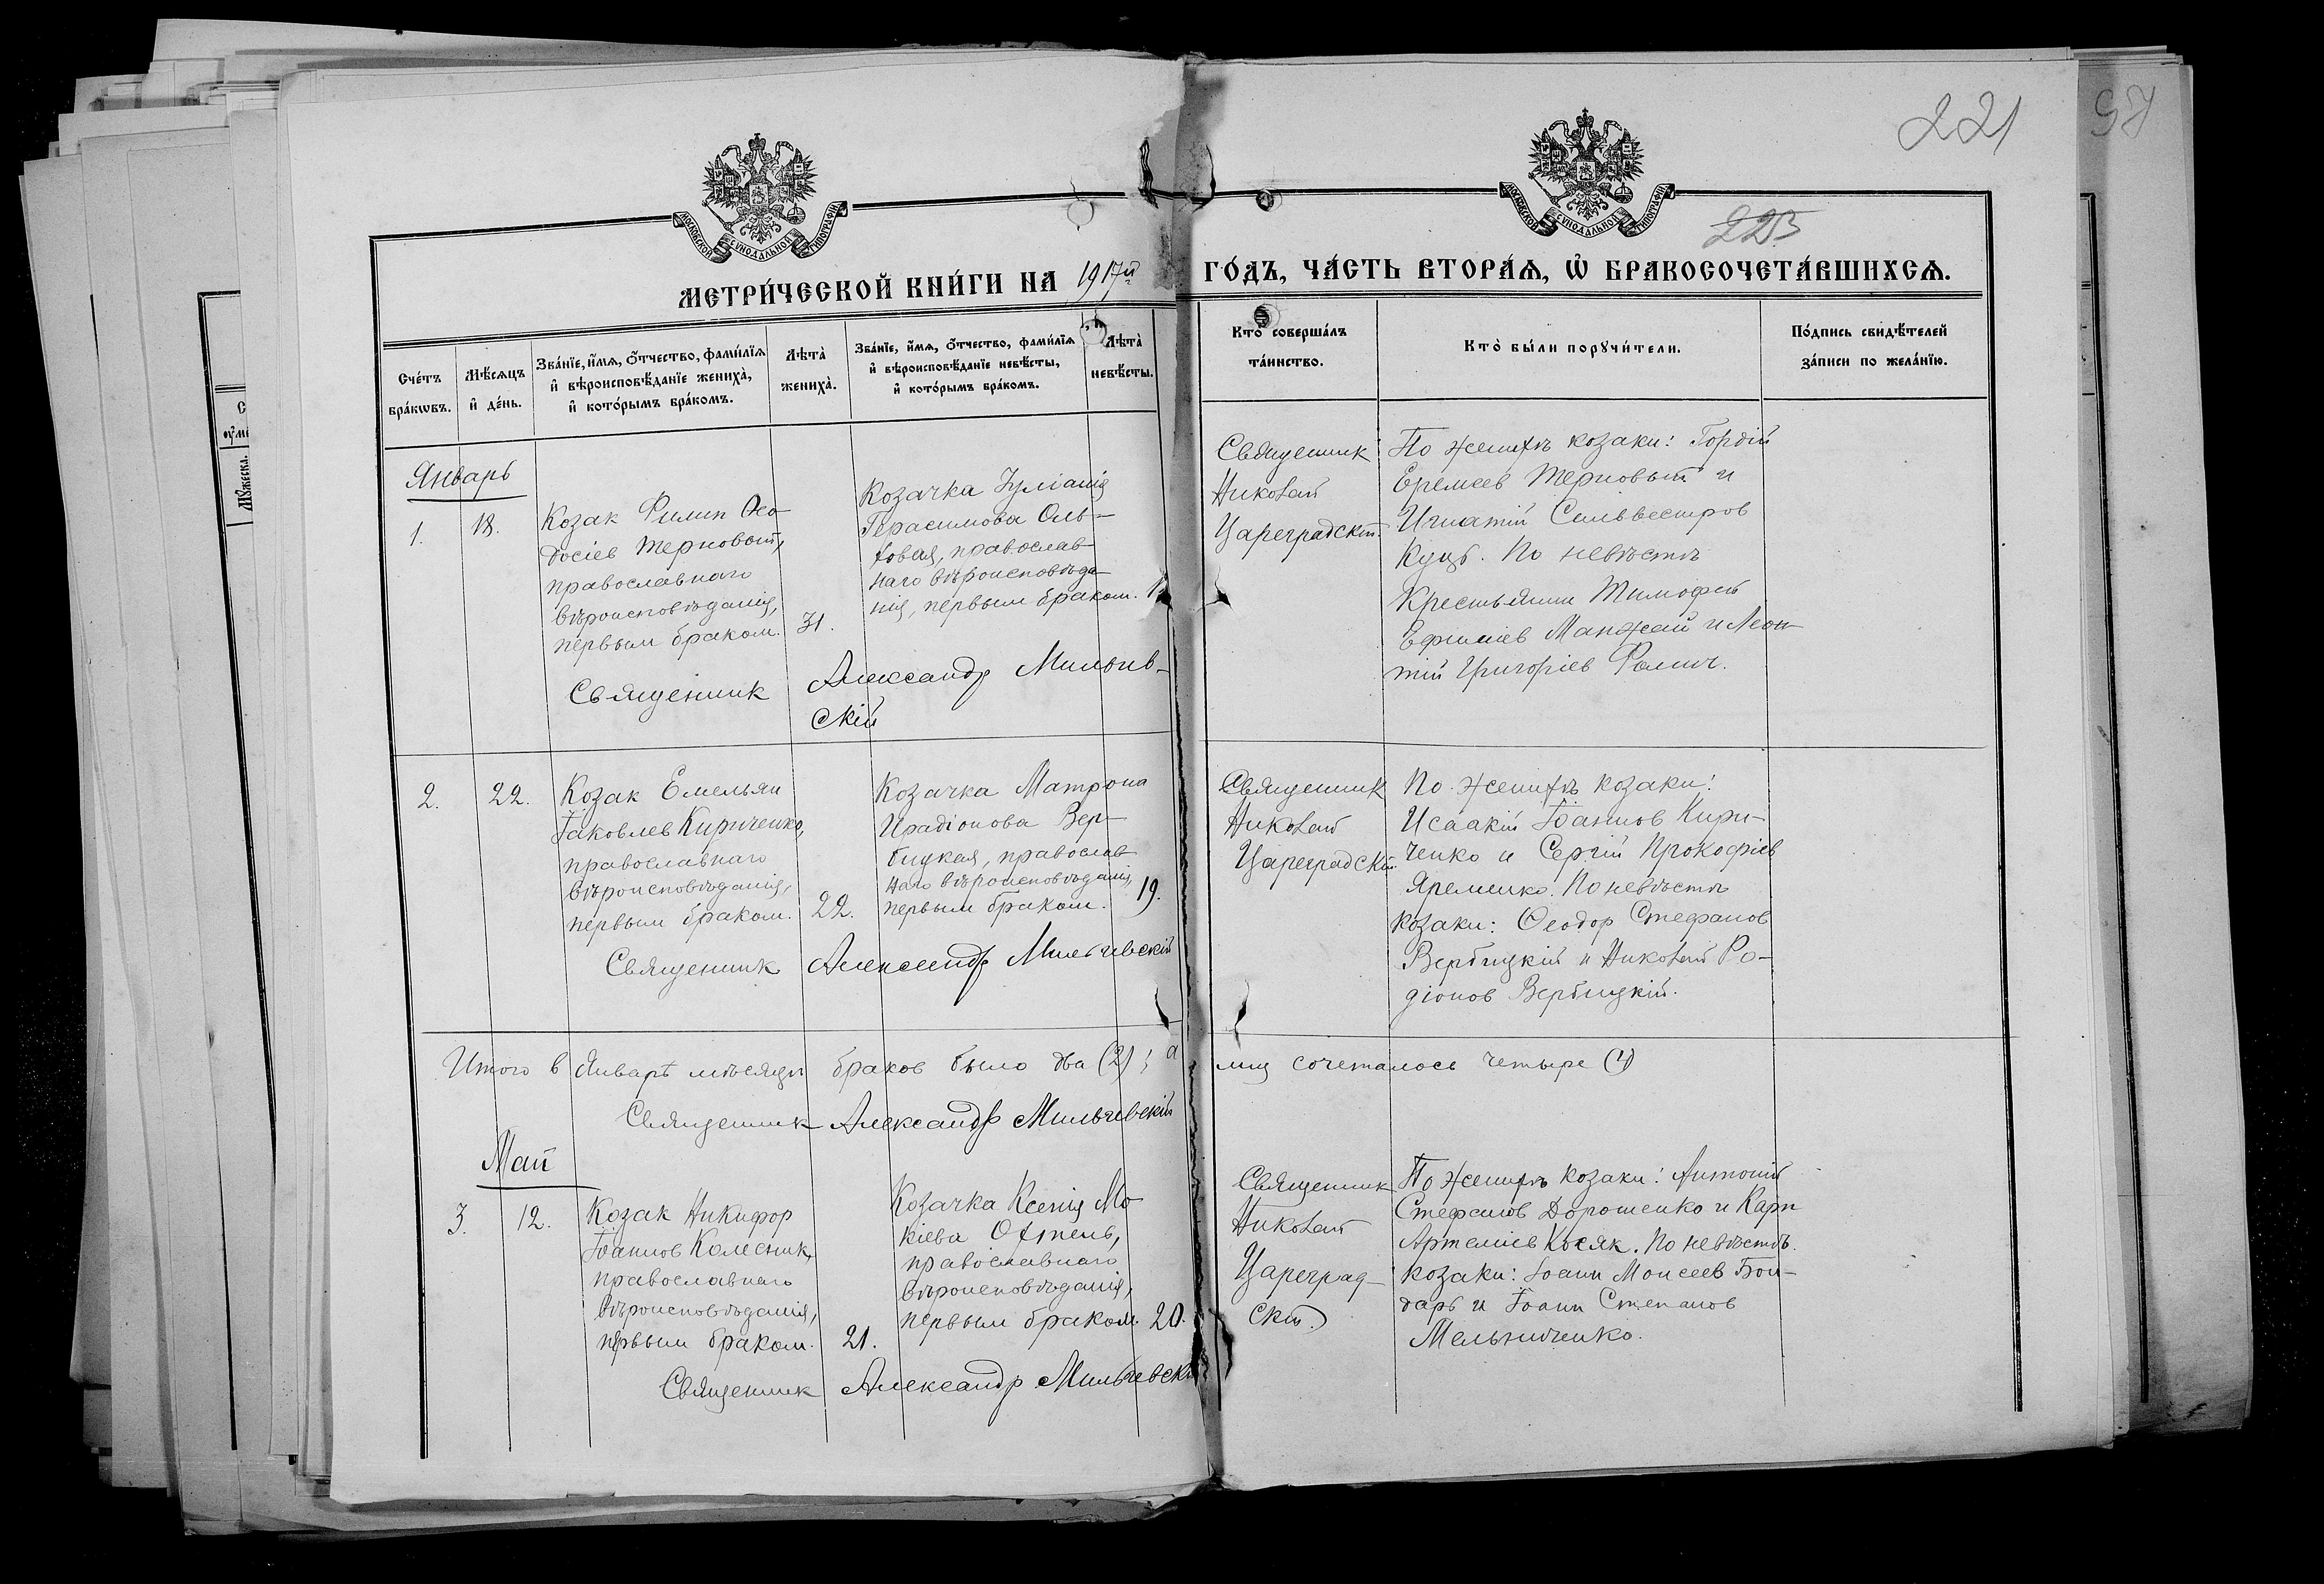 221
97
223
МОСКОВСКОЙ СѴНОДАЛЬНОЙ ТИПОГРАФІИ
МОСКОВСКОЙ СѴНОДАЛЬНОЙ ТИПОГРАФІИ
МЕТРИ́ЧЕСКОЙ КНИ́ГИ НА 1917й ГО́ДЪ, ЧА́СТЬ ВТОРА́Ѧ, Ѽ БРАКОСОЧЕТА́ВШИХСѦ.
Сче́тъ
бра́кѡвъ.
Мѣ́сѧцъ
и҆ де́нь.
Зва́нїе, и҆́мѧ, ѻ҆́тчество, фамі́лїѧ
и҆ вѣроисповѣ́данїе жениха̀,
и҆ кото́рымъ бра́комъ.
Лѣта̀
жениха̀.
Зва́нїе, и҆́мѧ, ѻ҆́тчество, фамі́лїѧ
и҆ вѣроисповѣ́данїе невѣ́сты,
и҆ кото́рымъ бра́комъ.
Лѣта̀
невѣ́сты.
Кто̀ соверша́лъ
та́инство.
Кто̀ бы́ли порꙋчи́тели.
По́дпись свидѣ́телей
за́писи по жела́нїю.
Январь
1.
18.
Козак Филип Ѳео-
досіев Терновый,
православнаго
вѣроисповѣданія,
первым браком.
31.
Козачка Іуліанія
Герасимова Оль-
ховая, православ-
наго вѣроисповѣда-
нія, первым браком.
Священник
Николай
Цареградскій.
По женихѣ козаки: Гордій
Еремеев Терновый и
Игнатій Сильвестров
Куць. По невѣстѣ
Крестьянин Тимофей
Ефимиев Манжай и Леон-
тій Григоріев Фомич.
Священник Александр Мильчев-
скій
2.
22.
Козак Емельян
Іаковлев Кириченко,
православнаго
вѣроисповѣданія,
первым браком.
22.
Козачка Матрона
Иродіонова Вер-
бицкая, православ-
наго вѣроисповѣданія,
первым браком.
19.
Священник
Николай
Цареградскій
По женихѣ козаки:
Исаакій Іоаннов Кири-
ченко и Сергій Прокофіев
Яременко. По невѣстѣ
козаки: Ѳеодор Стефанов
Вербицкій и Николай Ро-
діонов Вербицкій.
Священник Александр Мильчевскій
Итого в Январѣ мѣсяцѣ браков было два (2); а лиц сочеталось четыре (4)
Священник Александр Мильчевскій
Май
3.
12.
Козак Никифор
Іоаннов Колесник,
православнаго
вѣроисповѣданія,
первым браком.
21.
Козачка Ксенія Мо-
кіева Охтень,
православнаго
вѣроисповѣданія,
первым браком.
20.
Священник
Николай
Цареград-
скій.
По женихѣ козаки: Антоній
Стефанов Дорошенко и Карп
Артеміев Косяк. По невѣстѣ
козаки: Іоанн Моисеев Бон-
дарь и Іоанн Степанов
Мельниченко.
Священник Александр Мильчевскій